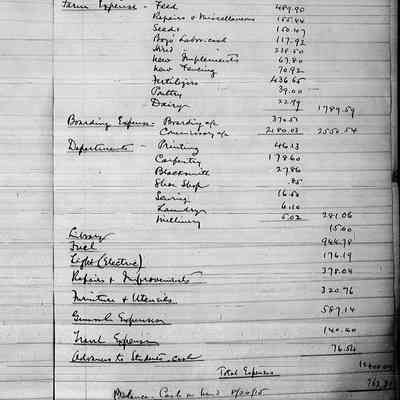 Farm Expense - Feed 489.90
Repairs & Miscellaneous 155.44
Seeds 150.47
Boys' Labor. cash 117.92
Hired " 238.50
New Implements 67.80
New Fencing 70.92
Fertilizers 436.65
Poultry 39.00
Dairy 22.99 1789.59
Boarding Expense - Boarding a/c 370.51
Commissary a/c 2180.03 2550.54
Departments - Printing 46.13
Carpentry 178.60
Blacksmith 27.86
Shoe Shop .85
Sewing 16.50
Laundry 6.10
Millinery 5.02 281.06
Library 15.00
Fuel 944.78
Light (Electric) 176.19
Repairs & Improvements 378.04
Furniture & Utensils 320.76
General Expenses 587.14
Travel Expenses 140.40
Advances to Students. cash 76.54
Total Expenses
Balance. Cash on hand